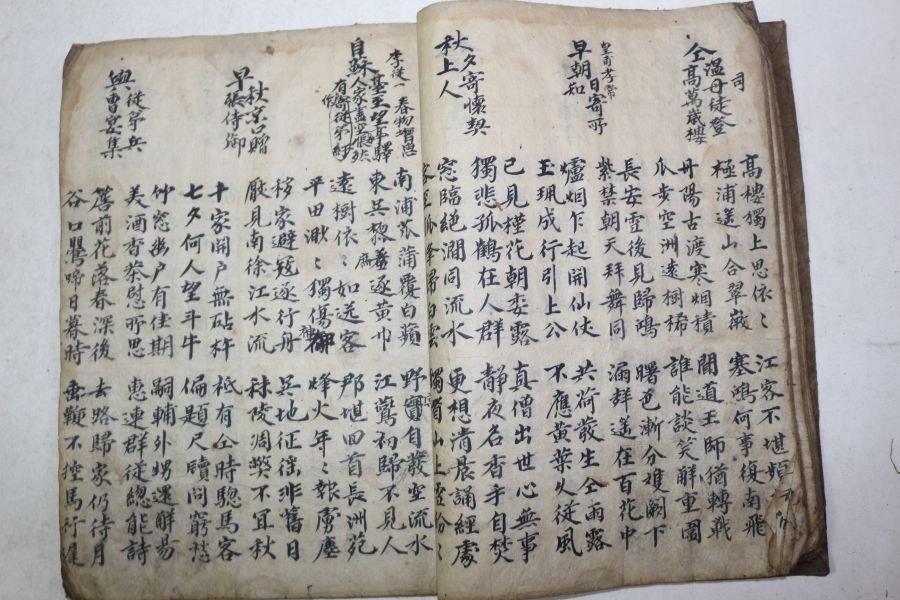 司
溫丹徒登
仝高萬歲樓
高樓獨上思依〻 江客不堪頻
極浦遙山合翠微 塞鴻何事復南飛
丹陽古渡寒烟積 聞道王師猶轉戰
瓜步空洲遠樹稀 誰能談笑解重圍
皇甫孝常
早朝日寄所知
長安雪後見歸鴻 曙色漸分雙闕下
紫禁朝天拜舞同 漏聲遙在百花中
爐烟乍起開仙仗 共荷發生仝雨露
玉珮成行引上公 不應黃葉久從風
秋夕寄懷契上人
已見槿花朝委露 真僧出世心無事
獨悲孤鶴在人群 靜夜名香手自焚
窓臨絕澗同流水 更想清晨誦經處
客至孤峰掃白雲 獨看山上雪紛〻
李從一
自蘇臺至望亭驛
人家盡空春物增思悵然
有作寄從弟紓
南浦菰蒲覆白蘋 野棠自發空流水
東吳黎庶逐黃巾 江鶯初歸不見人
遠樹依〻如送客 那堪回首長洲苑
平田渺〻獨傷神 烽火年〻報虜塵
早秋京口贈張侍御
移家避寇逐行舟 吳地征徭非舊日
厭見南徐江水流 秣陵凋弊不宜秋
千家開戶無砧杵 柢有仝時驄馬客
七夕何人望斗牛 偏題尺牘問窮愁
與從弟兵曹宴集
竹窓幽戶有佳期 嗣輔外甥還解易
美酒香茶慰所思 惠連群從總能詩
簷前花落春深後 去路歸家仍待月
谷口鶯啼日暮時 垂鞭不控馬行遲